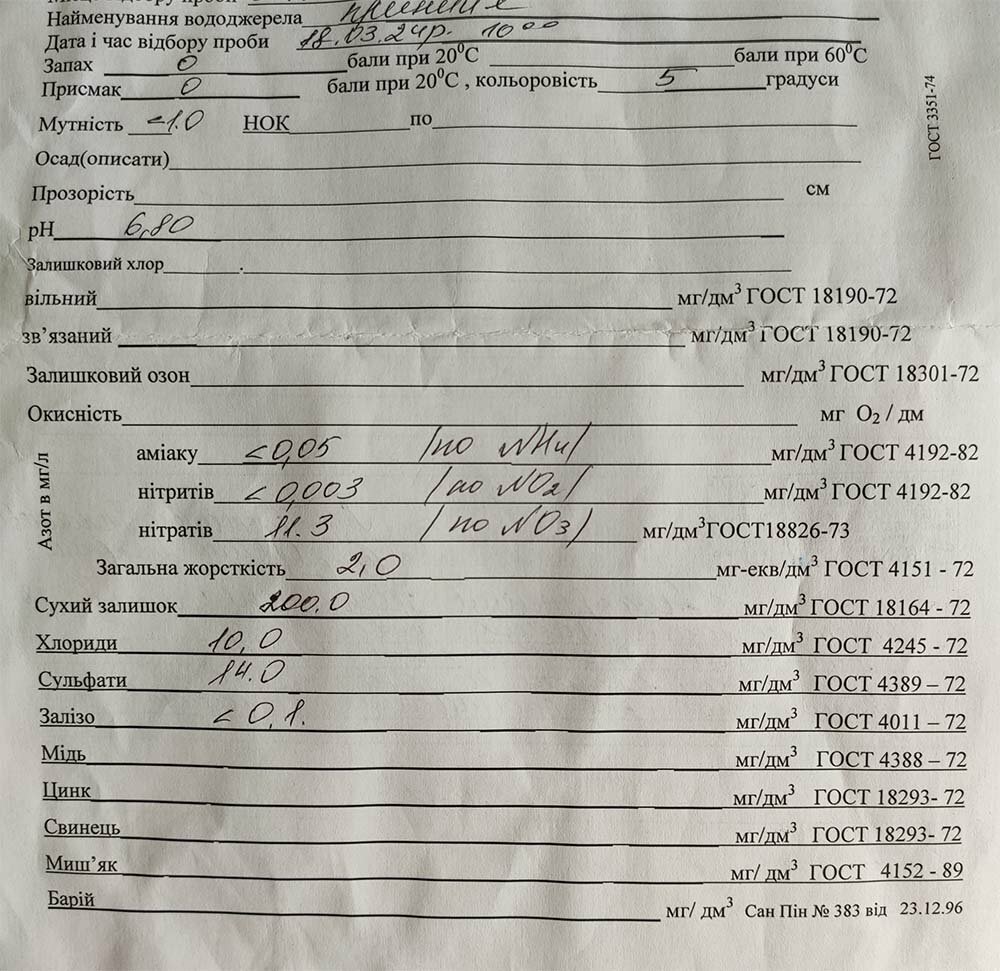 Найменування вододжерела
Дата і час відбору проби 18.03.24р. 10⁰⁰
Запах 0 бали при 20⁰С бали при 60⁰С
Присмак 0 бали при 20⁰С , кольоровість 5 градуси
ГОСТ 3351-74
Мутність <1.0 НОК по
Осад(описати)
Прозорість см
рН 6,80
Залишковий хлор
вільний мг/дм³ ГОСТ 18190-72
зв’язаний мг/дм³ ГОСТ 18190-72
Залишковий озон мг/дм³ ГОСТ 18301-72
Окисність мг О₂ / дм
Азот в мг/л
аміаку <0,05 /по NH4/ мг/дм³ ГОСТ 4192-82
нітритів <0,003 /по NO2/ мг/дм³ ГОСТ 4192-82
нітратів 11.3 /по NO3) мг/дм³ГОСТ18826-73
Загальна жорсткість 2,0 мг-екв/дм³ ГОСТ 4151 - 72
Сухий залишок 200.0 мг/дм³ ГОСТ 18164 - 72
Хлориди 10,0 мг/дм³ ГОСТ 4245 - 72
Сульфати 14.0 мг/дм³ ГОСТ 4389 – 72
Залізо < 0,1. мг/дм³ ГОСТ 4011 – 72
Мідь мг/дм³ ГОСТ 4388 – 72
Цинк мг/дм³ ГОСТ 18293- 72
Свинець мг/дм³ ГОСТ 18293- 72
Миш’як мг/ дм³ ГОСТ 4152 - 89
Барій мг/ дм³ Сан Пін № 383 від 23.12.96